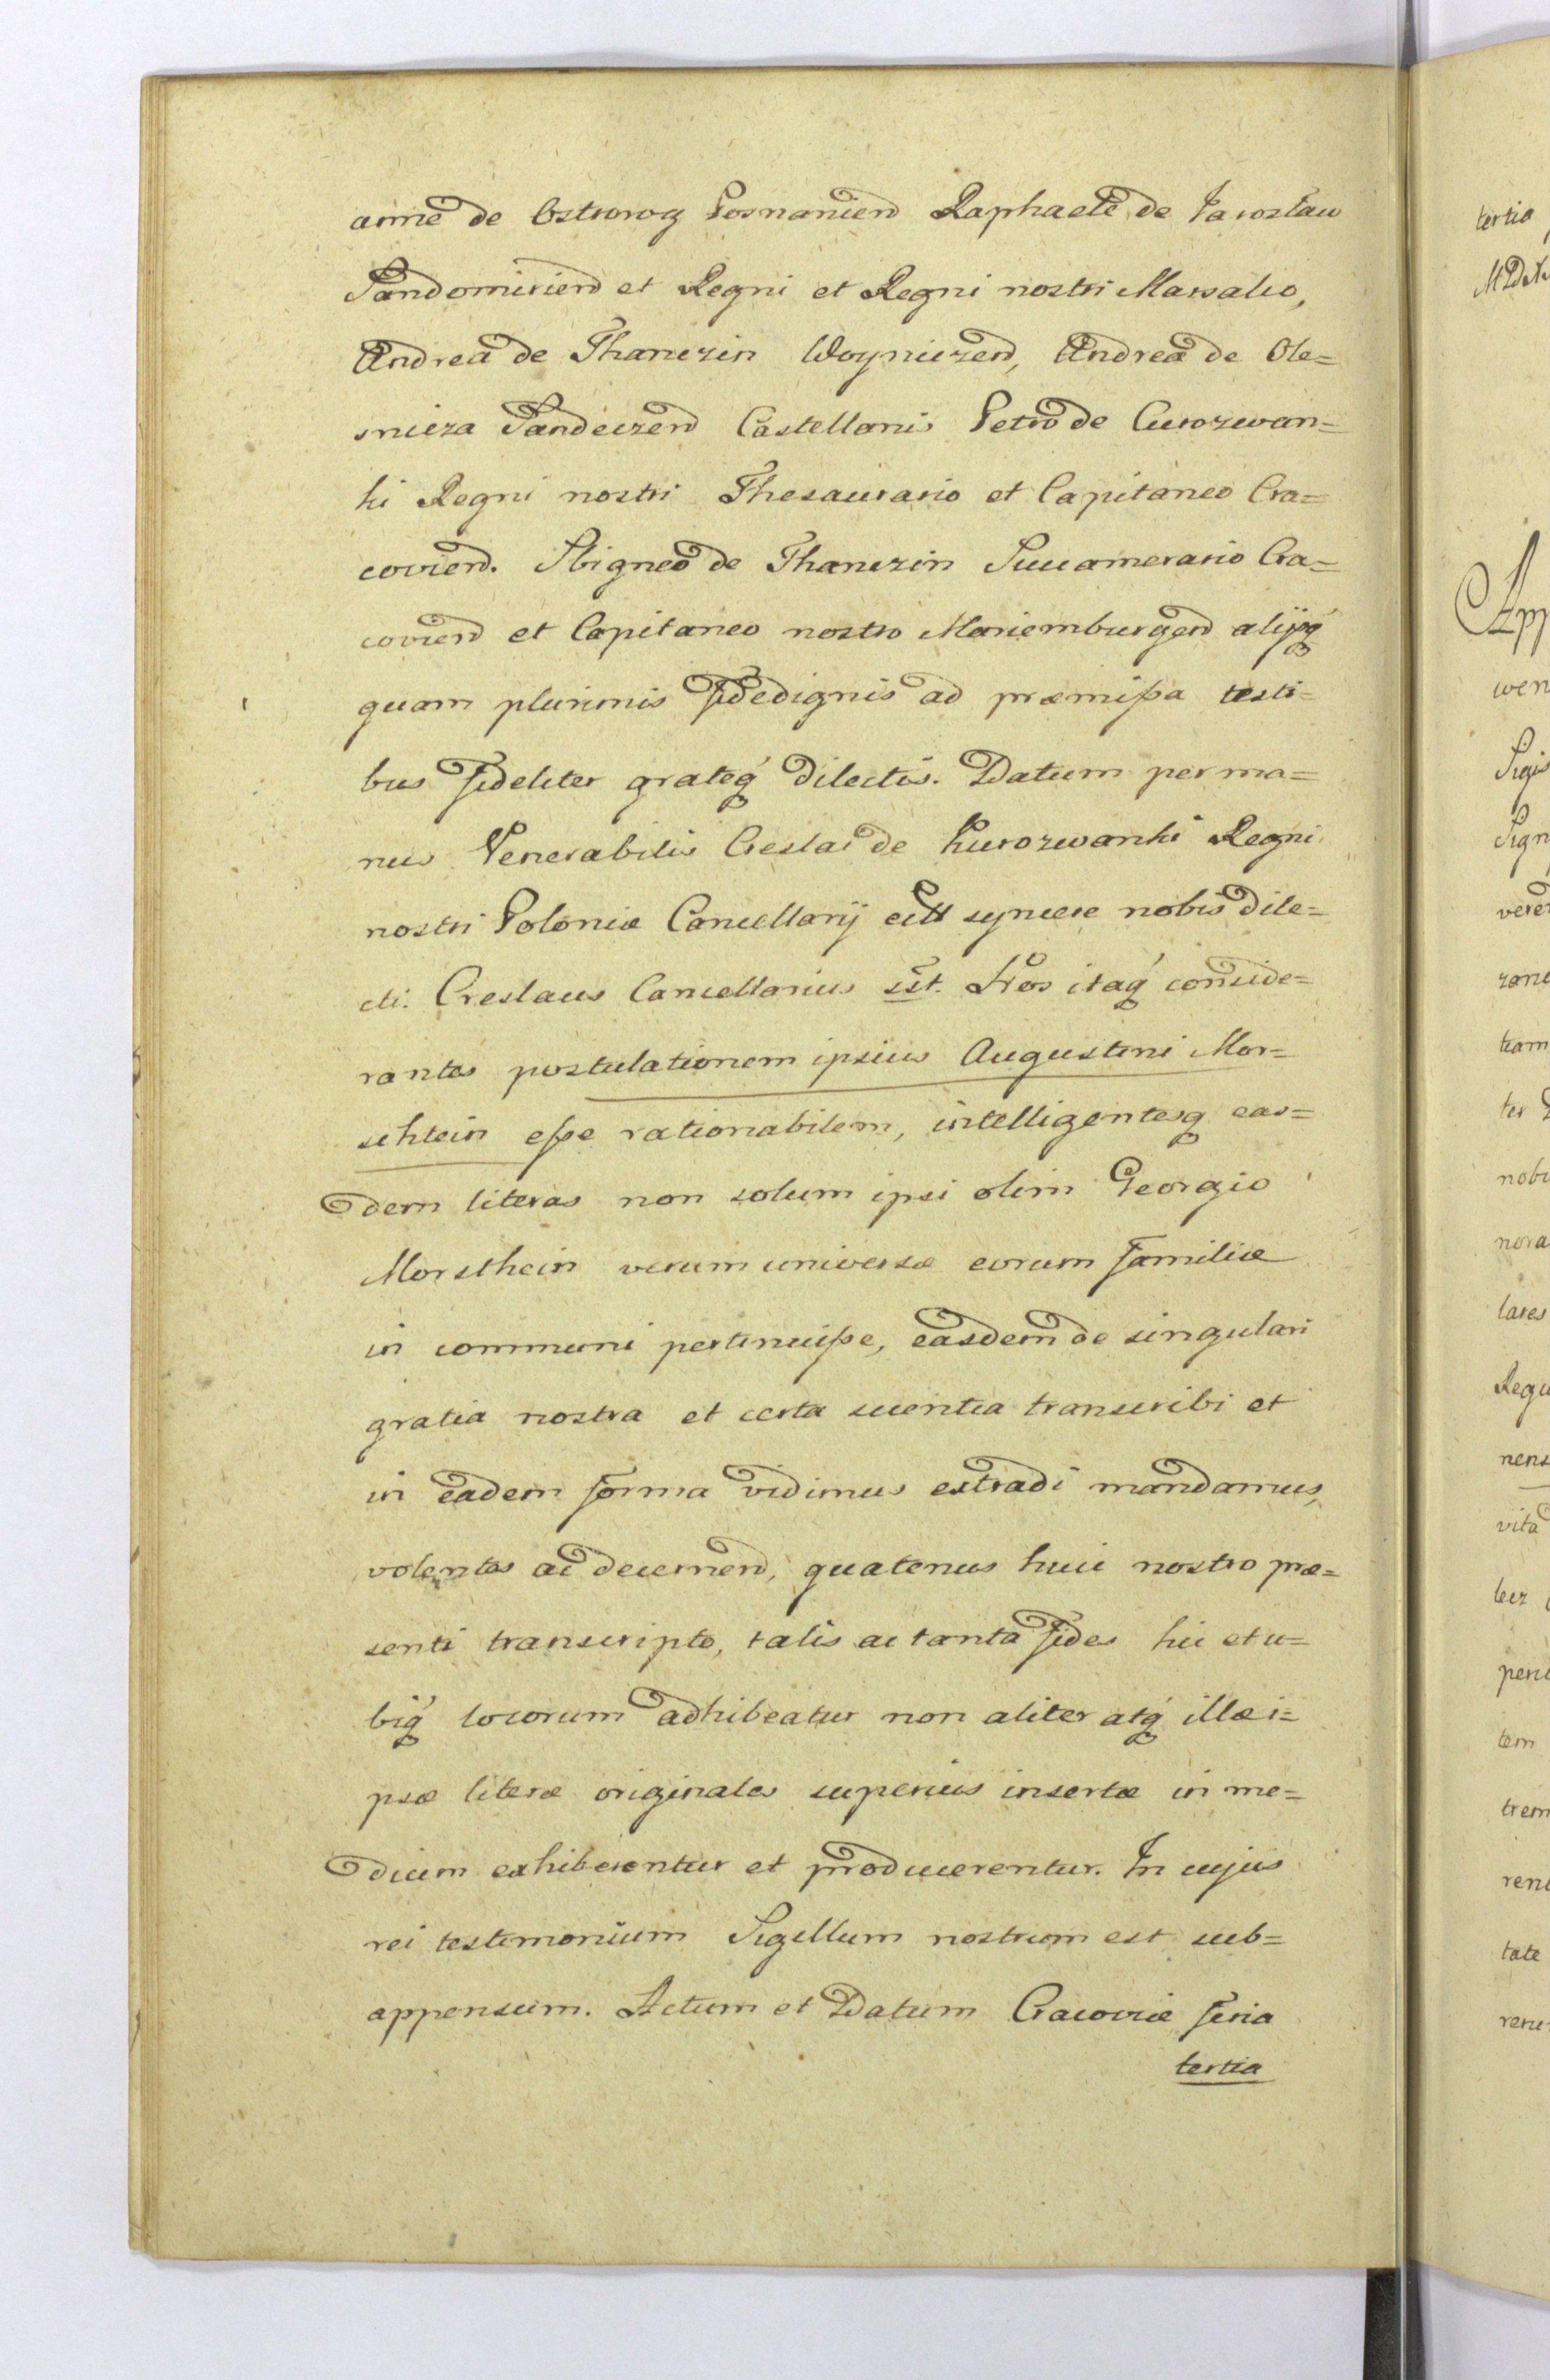 anne de Ostrorog Posnanien Raphaele de Jaroslau
Sandomirien et Regni et Regni nostri Marsalco,
Andrea de Thanczin Woyniczen, Andrea de Ole=
snicza Sandeczen Castellanis Petro de Curozwan=
ki Regni nostri Thesaurario et Capitaneo Cra=
covien. Sbigneo de Thanczin Succamerario Cra=
covien et Capitaneo nostro Mariemburgen alijsq́
quam plurimis fidedignis ad præmißa testi=
bus fideliter grateq́ dilectis. Datum per ma=
nus Venerabilis Creslai de Kurozwanki Regni
nostri Poloniæ Cancellarij syncere nobis dile=
cti. Creslaus Cancellarius sst. Nos itaq́ conside=
rantes postulationem ipsius Augustini Mor=
schtein eße rationabilem, intelligentesq eas=
dem literas non solum ipsi olim Georgio
Morsthein verum universæ eorum familiæ
in communi pertinuiße, easdem de singulari
gratia nostra et certa scientia transcribi et
in eadem forma vidimus extradi mandamus,
volentes ac decernen, quatenus huic nostro præ=
senti transcripto, talis ac tanta fides hic et u=
biq́ locorum adhibeatur non aliter atq́ illæ i=
psæ literæ originales superius insertæ in me=
dium exhiberentur et producerentur. In cujus
rei testimonium Sigillum nostrum est sub=
appensum. Actum et Datum Cracoviæ feria
tertia
tertia
App
wen
Sigis
Sign
zane
team
ter
nobi
nora
lares
Regu
nens
vita
tem
trem
tate